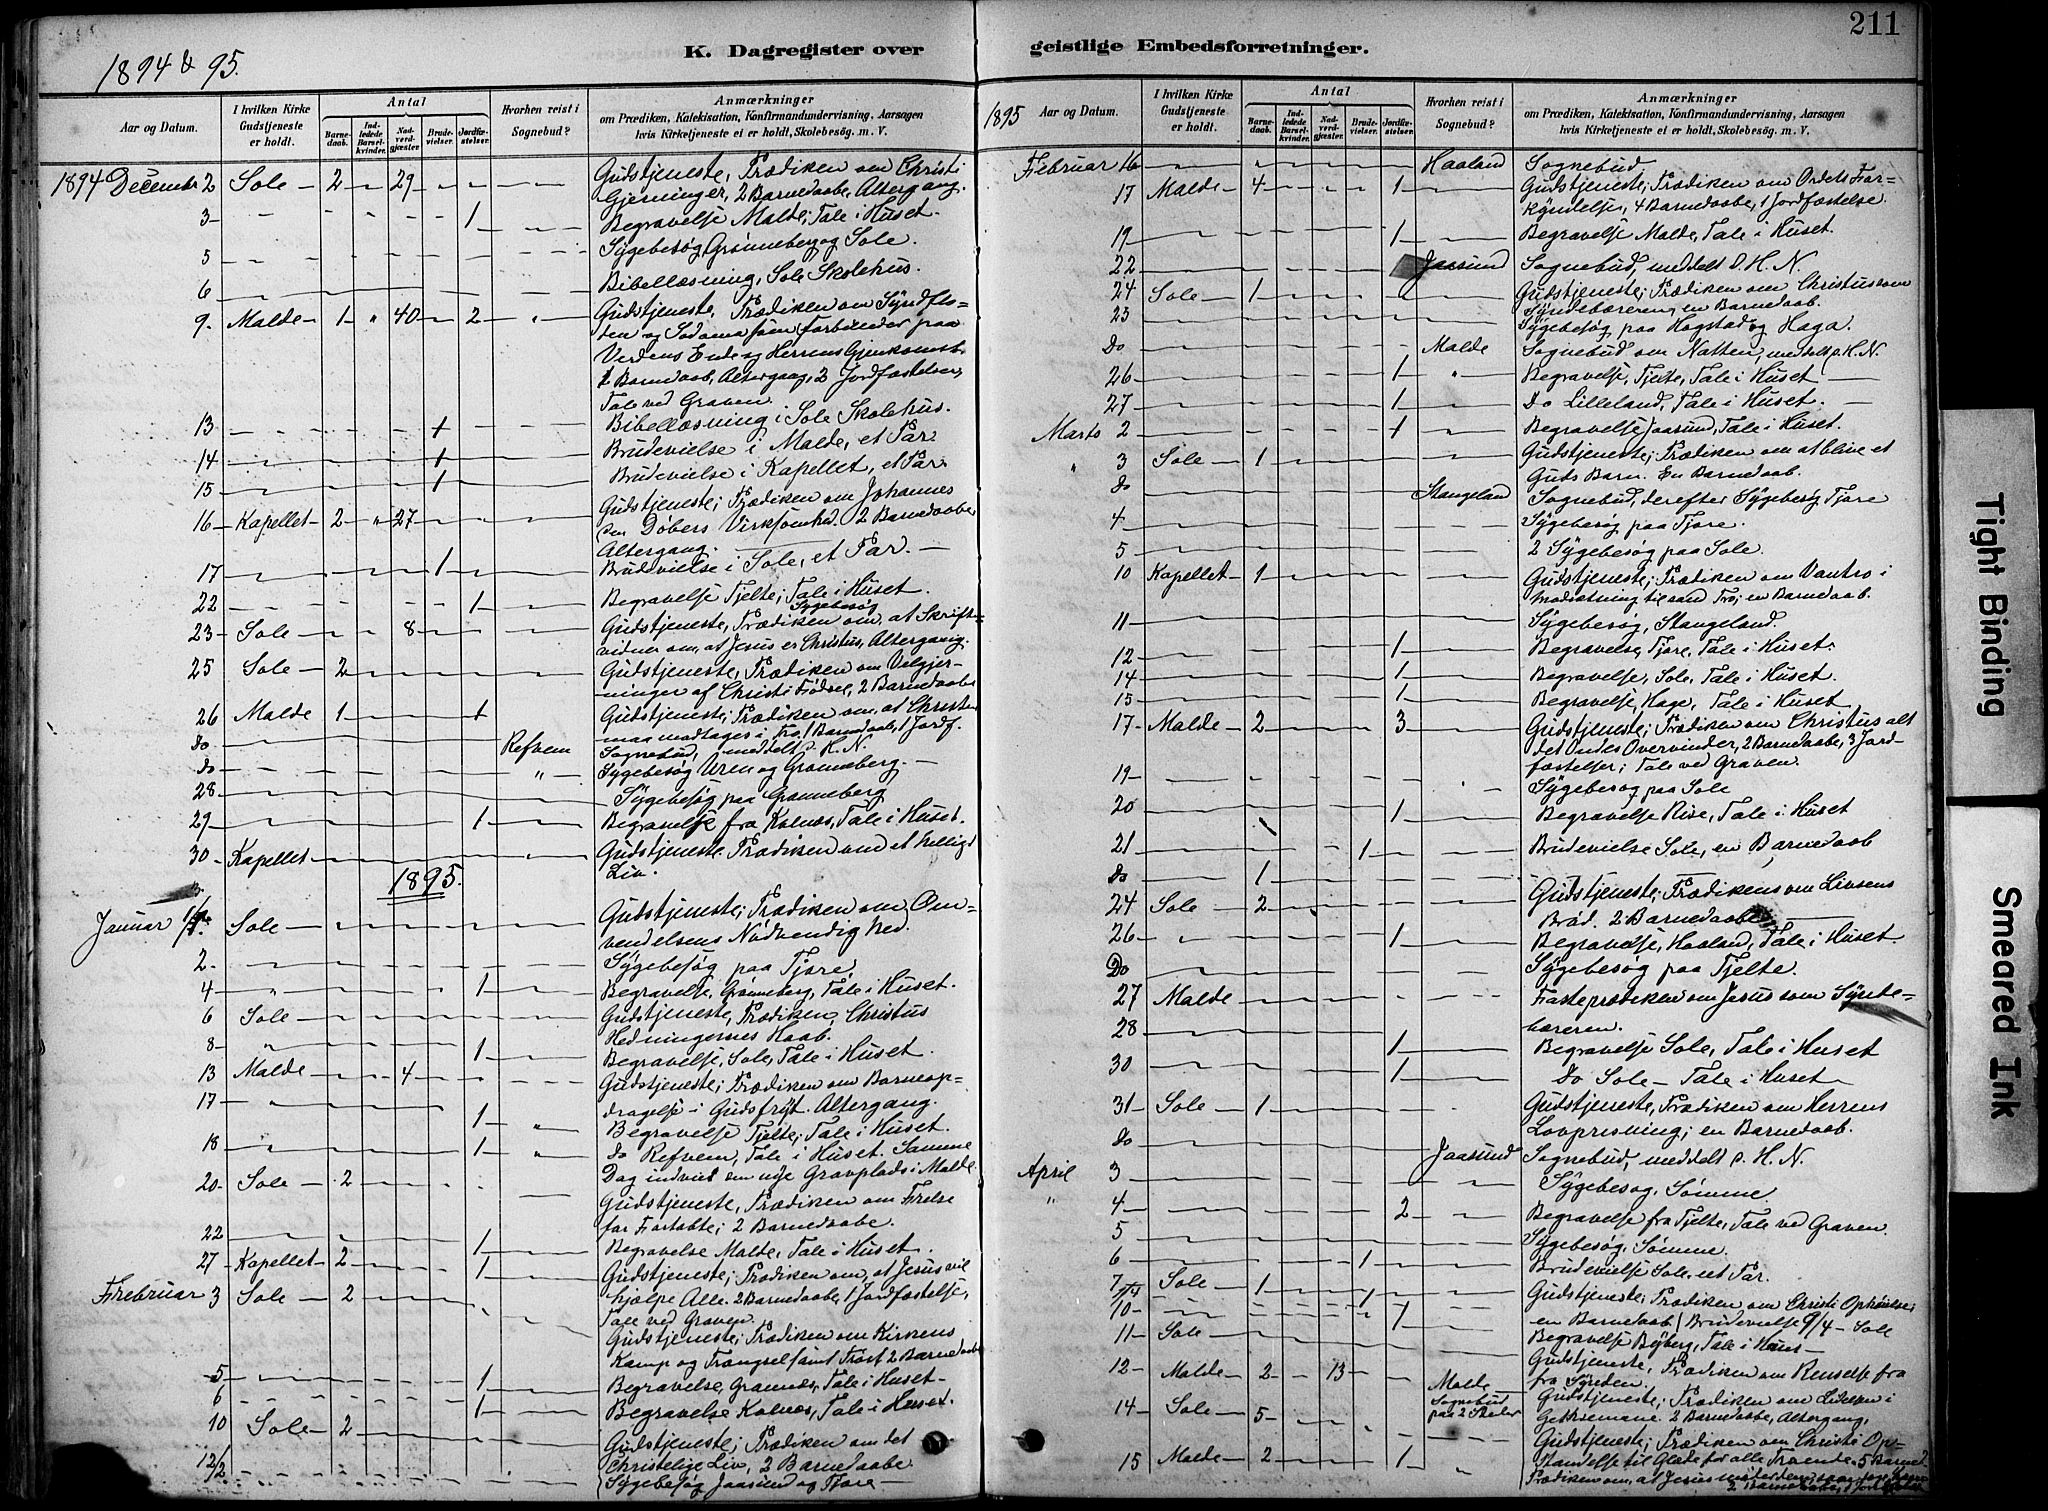 1894 & 95.
K. Dagregister over
Aar og Datum.
I hvilken Kirke Gudstjeneste er holdt.
Antal
Barne-daab.
Ind-ledede Barsel-kvinder.
Nad-verd-gjæster.
Brude-vielser.
Jordfæ-stelser.
Hvorhen reist i Sognebud?
Anmærkninger
om Prædiken, Katekisation, Konfirmandundervisning, Aarsagen
hvis Kirketjeneste ei er holdt, Skolebesøg. m. V.
1894 December 2 Sole 2 29 Gudstjeneste, Prædiken om Christi
Gjerninger, 2 Barnedaabe, Altergang.
3 1 Begravelse Malde; Tale i Huset.
5 Sygebesøg, Grønneberg og Sole.
6 Bibellæsning, Sole Skolehus.
9. Malde 1 " 40 2 Gudstjeneste, Prædiken om Syndflo-
den og Sodoma som Forbereder paa
Verdens Ende og Herrens Gjenkomst
1 Barnedaab, Altergang, 2 Jordfæstelser,
Tale ved Graven.
13 Bibellæsning i Sole Skolehus.
14 1 Brudevielse i Malde, et Par
15 1 Brudevielse i Kapellet, et Par
16 Kapellet 2 " 27 Gudstjeneste; Prædiken om Johannes
den Døbers Virksomhed. 2 Barnedaabe,
Altergang.
17 1 Brudevielse i Sole, et Par.
22 1 Begravelse Tjelte; Tale i Huset.
Sygebesøg
23 Sole 8 Gudstjeneste, Prædiken om, at Skrift-
vidner om, at Jesus er Christus, Altergang.
25 Sole 2 Gudstjeneste, Prædiken om Velgjer-
ningen af Christi Fødsel, 2 Barnedaabe
26 Malde 1 1 Gudstjeneste; Prædiken om, at Christus
maa modtages i Tro, 1 Barnedaab, 1 Jordf.
Do Refvem Sognebud, meddelt d. H. N.
Do " Sygebesøg Uren og Grønneberg.
28 Sygebesøg paa Grønneberg
29 1 Begravelse fra Kolnæs, Tale i Huset.
30 Kapellet Gudstjeneste Prædiken om et helligt
Liv.
1895.
Januar 1. Sole Gudstjeneste; Prædiken om Om-
vendelsens Nødvendighed.
2. Sygebesøg paa Tjore.
4 1 Begravelse, Grønneberg, Tale i Huset.
6 Sole Gudstjeneste, Prædiken, Christus
Hedningernes Haab.
8 1 Begravelse, Sole, Tale i Huset.
13 Malde 4 Gudstjeneste; Prædiken om Barneop-
dragelse i Gudsfrygt. Altergang.
17 1 Begravelse Tjelte; Tale i Huset.
18 1 Do Refvem, Tale i Huset. Samme
Dag indviet den nye Gravplads i Malde.
20 Sole 2 Gudstjeneste, Prædiken om Frelse
for Fortabte; 2 Barnedaabe.
22 1 Begravelse Malde, Tale i Huset.
27 Kapellet 2 1 Gudstjeneste; Prædiken om, at Jesus vil
hjælpe Alle. 2 Barnedaabe, 1 Jordfæstelse,
Tale ved Graven.
Februar 3 Sole 2 Gudstjeneste; Prædiken om Kirkens
Kamp og Trængsel samt Trøst 2 Barnedaabe
5 1 Begravelse, Grannes, Tale i Huset
6 1 Begravelse Kolnæs, Tale i Huset.
10 Sole 2 Gudstjeneste; Prædiken om det
christelige Liv, 2 Barnedaabe
12/2 Sygebesøg Jaasund og Tjore
geistlige Embedsforretninger.
211
1895
Aar og Datum.
I hvilken Kirke Gudstjeneste er holdt.
Antal
Barne-daab.
Ind-ledede Barsel-kvinder.
Nad-verd-gjæster.
Brude-vielser.
Jordfæ-stelser.
Hvorhen reist i Sognebud?
Anmærkninger
om Prædiken, Katekisation, Konfirmandundervisning, Aarsagen
hvis Kirketjeneste ei er holdt, Skolebesøg. m. V.
Februar 16 Haaland Sognebud
17 Malde 4 1 Gudstjeneste; Prædiken om Ordets For-
kyndelse, 4 Barnedaabe, 1 Jordfæstelse.
19 1 Begravelse Malde, Tale i Huset.
22 Jaasund Sognebud, meddelt d. H. N.
24 Sole 1 Gudstjeneste; Prædiken om Christus som
Syndebæreren, en Barnedaab.
23 Sygebesøg paa Hogstad og Haga.
Do Malde Sognebud om Natten, meddelt d. H. N.
26 1 " Begravelse, Tjelte, Tale i Huset
27 1 " Do Lilleland, Tale i Huset.
Marts 2 1 " Begravelse Jaasund, Tale i Huset.
" 3 Sole 1 Gudstjeneste; Prædiken om at blive et
Guds Barn. En Barnedaab.
Do Stangeland Sognebud, derefter Sygebesøg Tjore
4 Sygebesøg paa Tjore.
5 2 Sygebesøg paa Sole.
10 Kapellet 1 Gudstjeneste; Prædiken om Vantro i
Modsætning til sand Tro; en Barnedaab.
11 Sygebesøg, Stangeland.
12 1 Begravelse, Tjore, Tale i Huset.
14 1 Begravelse, Sole, Tale i Huset.
15 1 Begravelse, Hage, Tale i Huset
17 Malde 2 3 Gudstjeneste; Prædiken om Christus alt
det Ondes Overvinder, 2 Barnedaabe, 3 Jord-
fæstelser; Tale ved Graven.
19 Sygebesøg paa Sole
20 1 Begravelse Rise, Tale i Huset
21 1 Brudevielse Sole, en Barnedaab
Do 1
24 Sole 2 Gudstjeneste; Prædikens om Livsens
Brød. 2 Barnedaabe
26 1 Begravelse, Haaland, Tale i Huset.
Do Sygebesøg paa Tjelte.
27 Malde Fasteprædiken om Jesus som Synde-
bæreren.
28 1 Begravelse Sole, Tale i Huset
30 1 Do Sole Tale i Huset
31 Sole 1 Gudstjeneste, Prædiken om Herrens
Lovprisning; en Barnedaab.
Do Jaasund Sognebud, meddelt d. H. N.
April 3 Sygebesøg, Sømme
" 4 2 Begravelse fra Tjelte, Tale ved Graven.
5 Sygebesøg, Sømme.
6 1 Brudevielse Sole, et Par.
7/4 Sole 1 1 Gudstjeneste; Prædiken om Christi Ophøielse;
en Barnedaab 1 Brudevielse 9/4 Sole
10 1 Begravelse Byberg, Tale i Huus
11 Sole Gudstjeneste; Prædiken om Renselse fra
fra Synden.
12 Malde 2 13 Malde Sognebud paa 2 Steder Gudstjeneste; Prædiken om Lidelsen i
Gethsemane 2 Barnedaabe, Altergang,
14 Sole 5 Gudstjeneste; Prædiken om Christi Op-
standelse til Glæde for alle Troende. 5 Barned.
15 Malde 2 1 " Prædiken om, at Jesus møder dem, som
2 Barnedaabe, 1 Jordfæstelse
Tight Binding
Smeared Ink